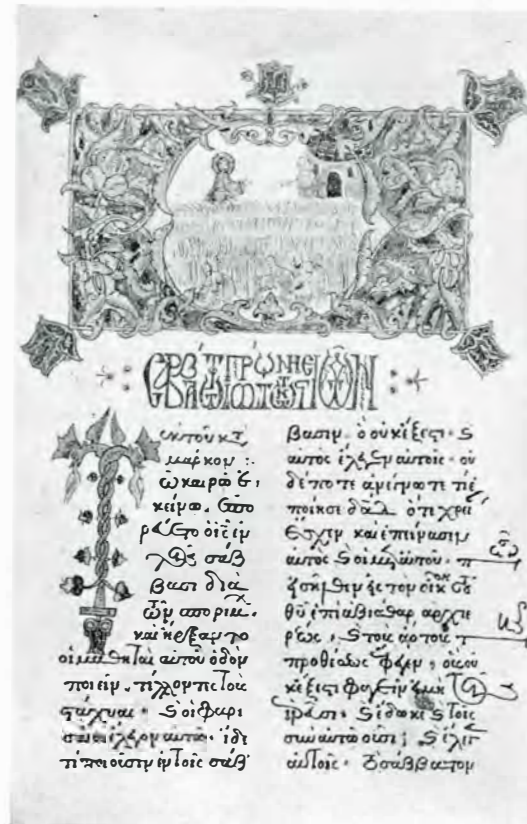 ἐκ τοῦ κτ
μάρκον :·
ῶ καιρῶ ἐ
κείνω. ἐπο
ρεύετο ὁ ις ἐν
τοῖς σάβ
βασι διὰ
τῶν σπορίμ.
καὶ ἤρξαντο
οἱ μαθηταὶ αὐτοῦ ὁδὸν
ποιεῖν. τίλλοντες τοὺς
στάχυας. ϗ οἱ φαρι
σαῖοι ἔλεγον αὐτῶ. ἴδε
τί ποιοῦσιν ἐν τοῖς σάβ
βασιν. ὃ οὐκ ἔξεστι. ϗ
αὐτὸς ἔλεγεν αὐτοῖς. οὐ
δέποτε ἀνέγνωτε τί ἐ
ποίησε δαδ ὅτε χρεί
ἔσχεν καὶ ἐπείνασεν
αὐτὸς ϗ οἱ μετ αὐτοῦ. π
εἰσῆλθεν εἰς τὸν οἶκον τοῦ
θυ ἐπὶ ἀβιάθαρ ἀρχιε
ρέως. ϗ τοὺς ἄρτους τ
προθέσεως ἔφαγεν; οὓς οὐ
κ ἔξεστι φαγεῖν εἰ μὴ τοῖς
ἱερεῦσι. ϗ ἔδωκε ϗ τοῖς
σὺν αὐτῶ οὖσι; ϗ ἔλεγεν
αὐτοῖς. τὸ σάββατον